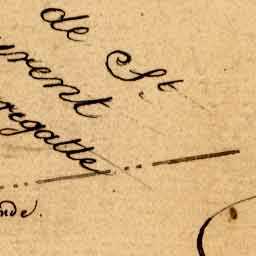 de St.
urent
regatte
nde.